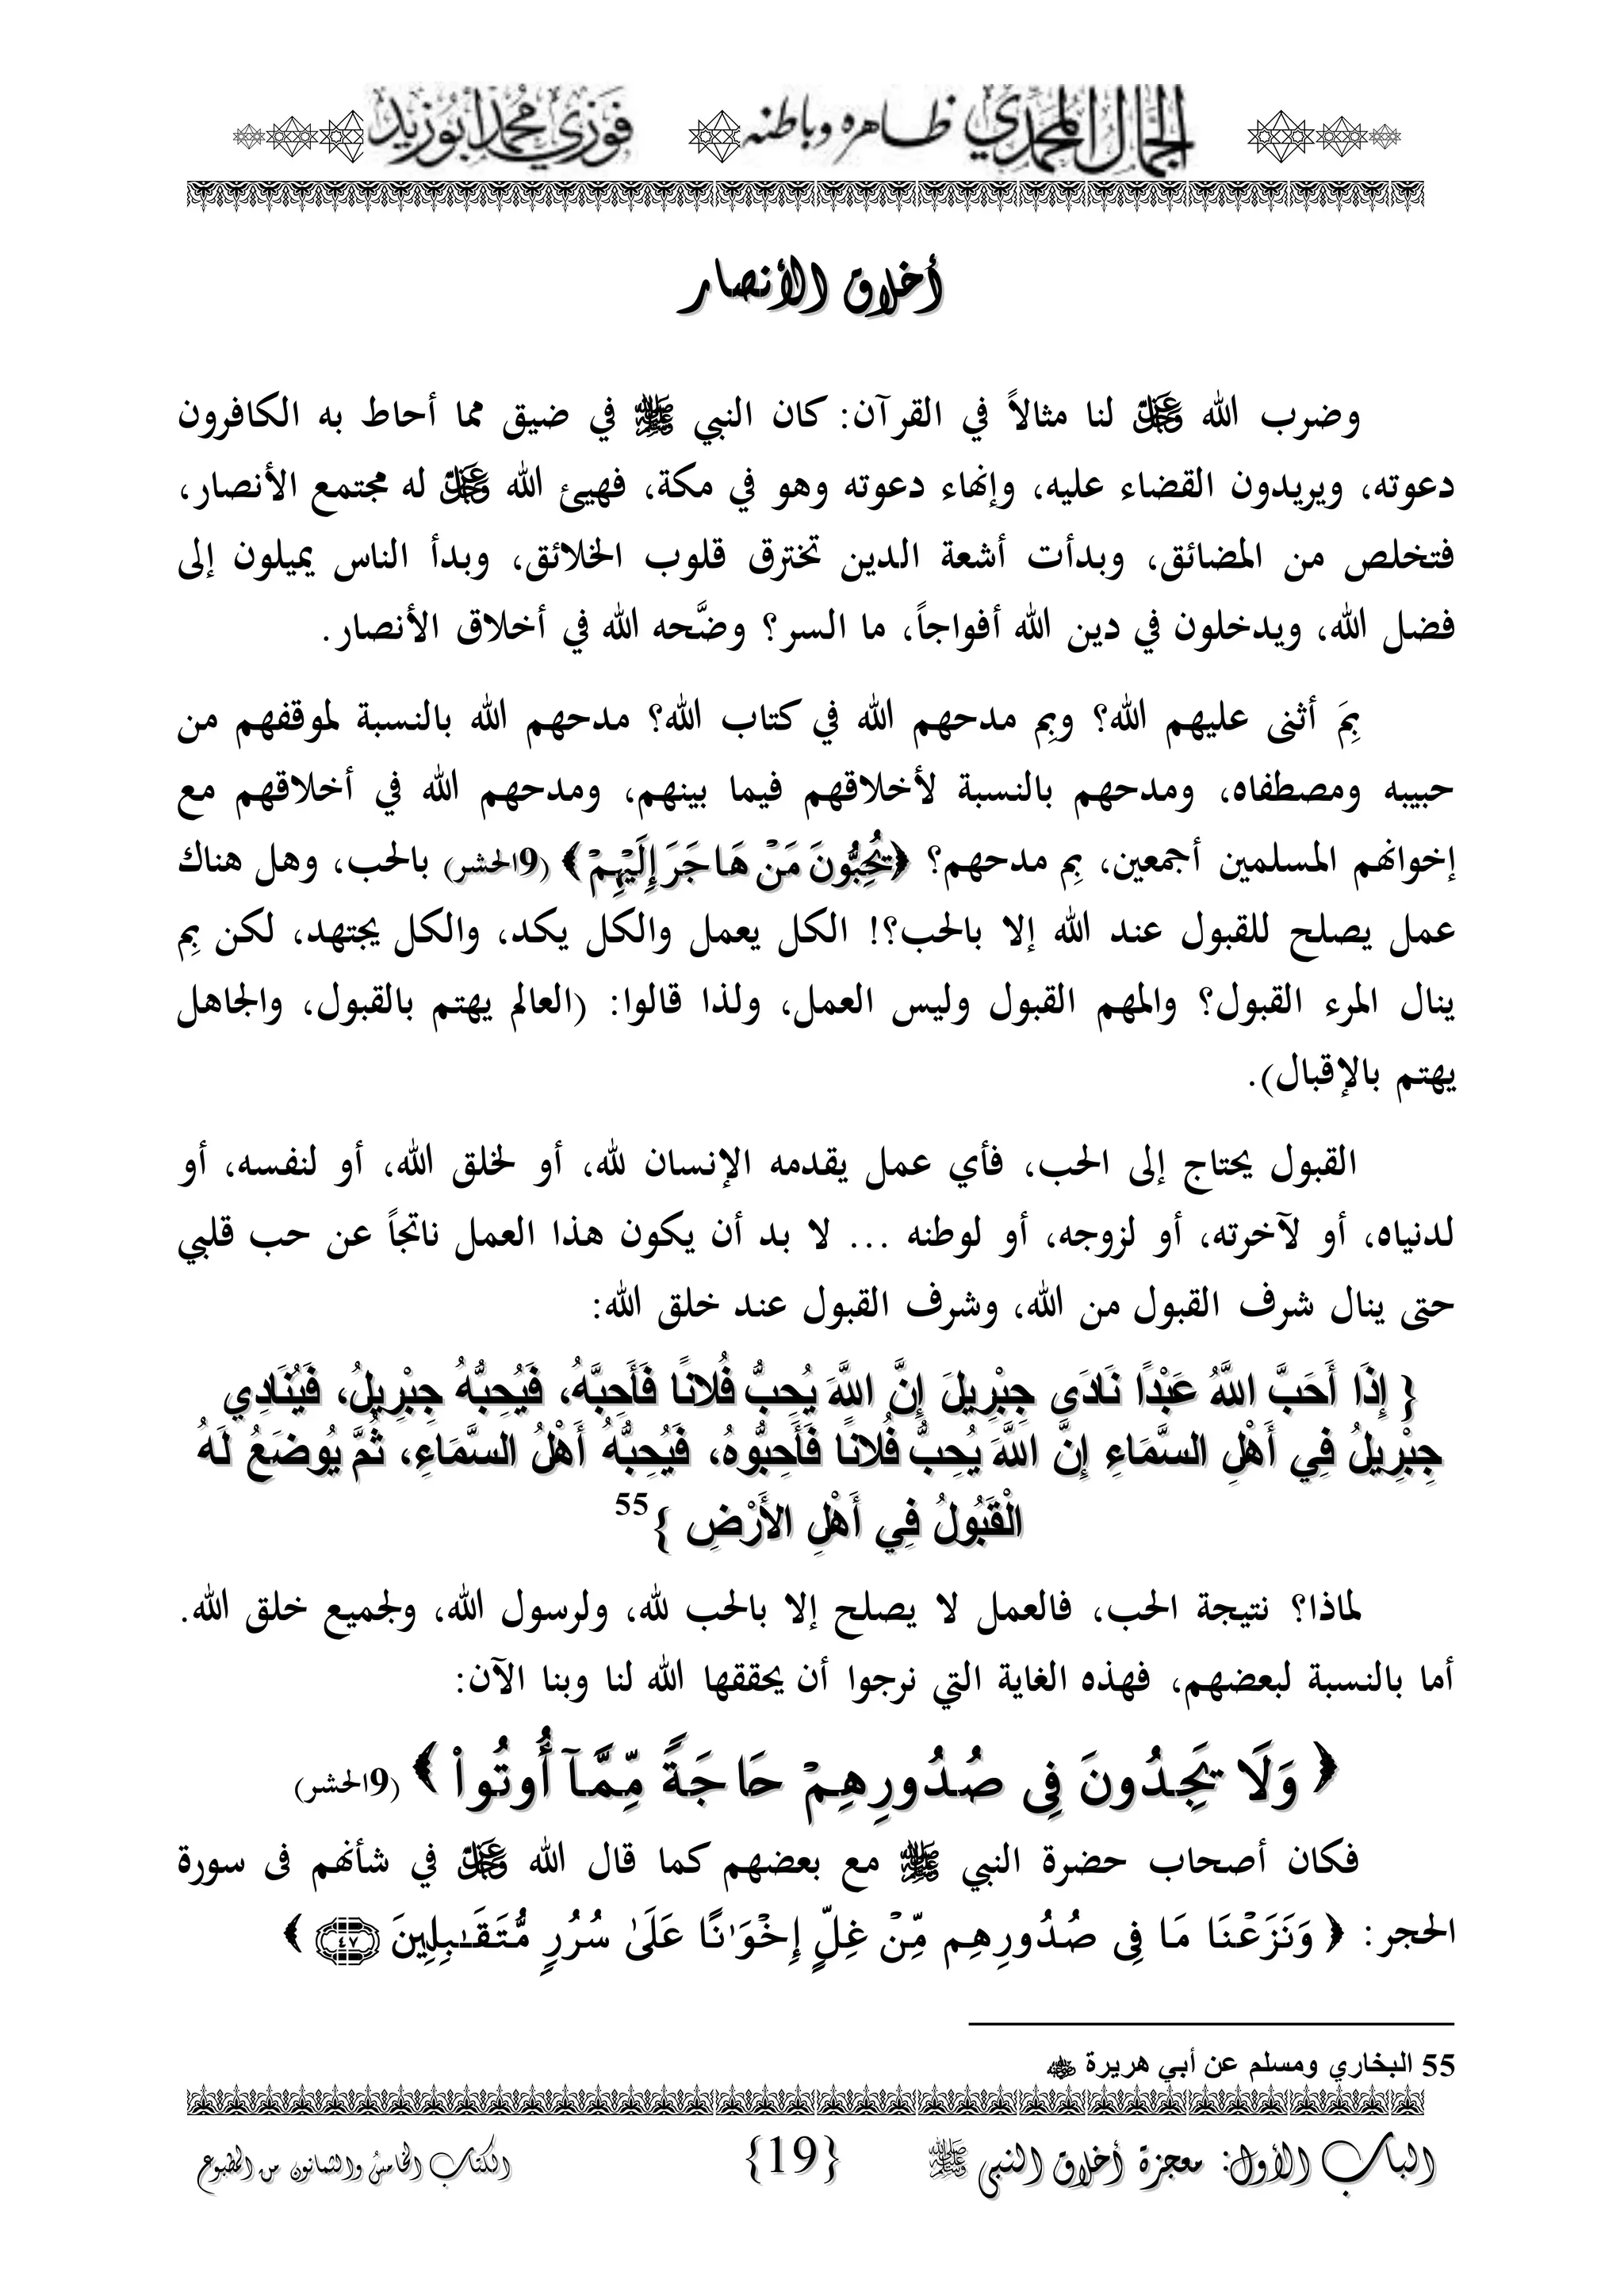 الجمال المحمدي ظاهره وباطنه فوزي محمد أبوزيد
أخلاق الأنصار
وضرب الله ﷿ لنا مثالاً في القرآن: كان النبي ﷺ في ضيق مما أحاط به الكافرون
دعوته، ويريدون القضاء عليه، وإنهاء دعوته وهو في مكة، فهيئ الله ﷿ له مجتمع الأنصار،
فتخلص من المضائق، وبدأت أشعة الدين تخترق قلوب الخلائق، وبدأ الناس يميلون إلى
فضل الله، ويدخلون في دين الله أفواجاً، ما السر؟ وضَّحه الله في أخلاق الأنصار.
بِمَ أثنى عليهم الله؟ وبِم مدحهم الله في كتاب الله؟ مدحهم الله بالنسبة لموقفهم من
حبيبه ومصطفاه، ومدحهم بالنسبة لأخلاقهم فيما بينهم، ومدحهم الله في أخلاقهم مع
إخوانهم المسلمين أجمعين، بِم مدحهم؟ ﴿ تُحِبُّونَ مَنْ هَاجَرَ إِلَيْهِمْ ﴾ (9الحشر) بالحب، وهل هناك
عمل يصلح للقبول عند الله إلا بالحب؟! الكل يعمل والكل يكد، والكل يجتهد، لكن بِم
ينال المرء القبول؟ والمهم القبول وليس العمل، ولذا قالوا: (العالم يهتم بالقبول، والجاهل
يهتم بالإقبال).
القبول يحتاج إلى الحب، فأي عمل يقدمه الإنسان لله، أو لخلق الله، أو لنفسه، أو
لدنياه، أو لآخرته، أو لزوجه، أو لوطنه ... لا بد أن يكون هذا العمل ناتجاً عن حب قلبي
حتى ينال شرف القبول من الله، وشرف القبول عند خلق الله:
{ إِذَا أَحَبَّ اللَّهُ عَبْدًا نَادَى جِبْرِيلَ إِنَّ اللَّهَ يُحِبُّ فُلانًا فَأَحِبَّهُ، فَيُحِبُّهُ جِبْرِيلُ، فَيُنَادِي
جِبْرِيلُ فِي أَهْلِ السَّمَاءِ إِنَّ اللَّهَ يُحِبُّ فُلانًا فَأَحِبُّوهُ، فَيُحِبُّهُ أَهْلُ السَّمَاءِ، ثُمَّ يُوضَعُ لَهُ
الْقَبُولُ فِي أَهْلِ الأَرْضِ }55
لماذا؟ نتيجة الحب، فالعمل لا يصلح إلا بالحب لله، ولرسول الله، ولجميع خلق الله.
أما بالنسبة لبعضهم، فهذه الغاية التي نرجوا أن يحققها الله لنا وبنا الآن:
﴿ وَلَا يَجِدُونَ فِى صُدُورِهِمْ حَاجَةً مِّمَّآ أُوتُواْ ﴾ (9الحشر)
فكان أصحاب حضرة النبي ﷺ مع بعضهم كما قال الله ﷿ في شأنهم فى سورة
الحجر: ﴿ وَنَزَعْنَا مَا فِى صُدُورِهِم مِّنْ غِلٍّ إِخْوَٰنًا عَلَىٰ سُرُرٍ مُّتَقَـٰبِلِينَ ٤٧ ﴾
55 البخاري ومسلم عن أبي هريرة ﵁
الباب الأول: معجزة أخلاق النبي ﷺ {19} الكتاب الخامس والثمانون من المطبوع